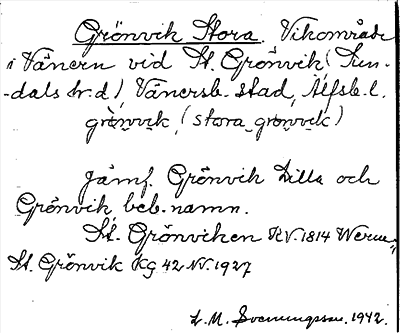 Grönvik Stora. Vikområde
i Vänern vid St. Grönvik (Sun-
-dals hr.d) Vänersb. stad, Älfsb. l.
grönvik, (stora grönvik)
Jämf. Grönvik Lilla och
Grönvik, beb.namn.
St. Grönviken KV. 1814 Werm.,
St. Grönvik Kg 42 NV. 1927
L. M. Svenungsson. 1942.